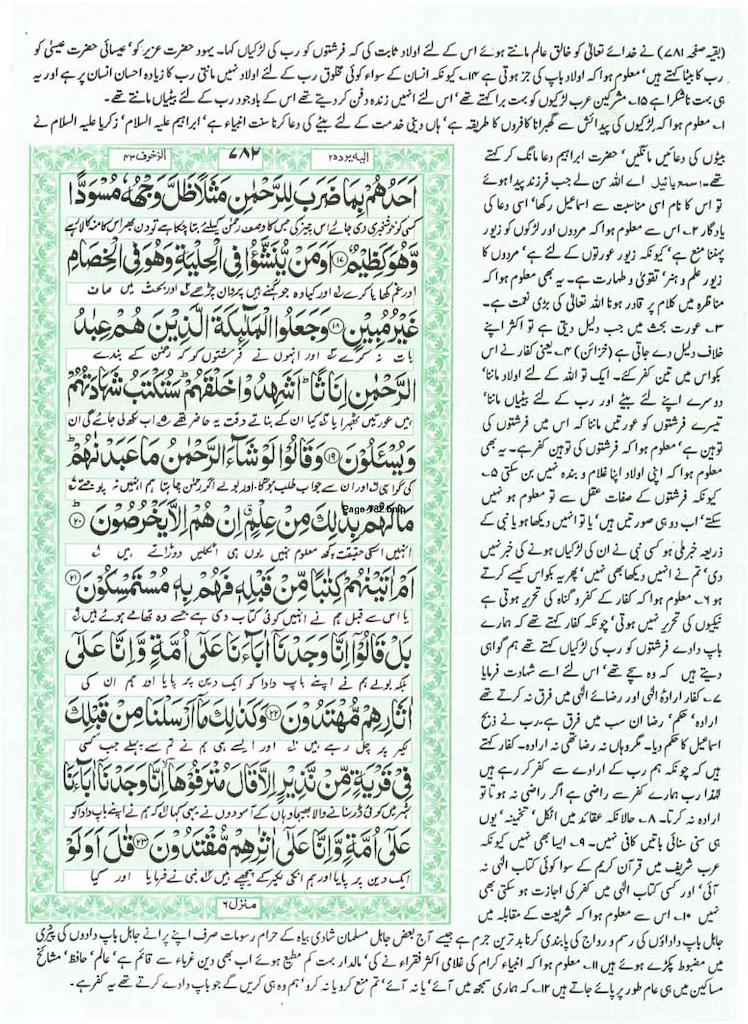 (بقیہ صفحہ ۷۸۱) نے خدائے تعالیٰ کو خالق عالم مانتے ہوئے اس کے لئے اولاد ثابت کی کہ فرشتوں کو رب کی لڑکیاں کہا۔ یہود حضرت عزیر کو' عیسائی حضرت عیسیٰ کو
رب کا بیٹا کہتے ہیں' معلوم ہوا کہ اولاد باپ کی جز ہوتی ہے ۱۴۔ کیونکہ انسان کے سواء کوئی مخلوق رب کے لئے اولاد نہیں مانتی رب کا زیادہ احسان انسان پر ہے اور یہ
ہی بہت ناشکرا ہے ۱۵۔ مشرکین عرب لڑکیوں کو بہت برا کہتے تھے' اس لئے انہیں زندہ دفن کر دیتے تھے اس کے باوجود رب کے لئے بیٹیاں مانتے تھے۔
۱۔ معلوم ہوا کہ لڑکیوں کی پیدائش سے گھبرانا کافروں کا طریقہ ہے' ہاں دینی خدمت کے لئے بیٹے کی دعا کرنا سنت انبیاء ہے' ابراہیم علیہ السلام' زکریا علیہ السلام نے
الیہ یرد ۲۵
۷۸۲
الزخرف ۴۳
اَحَدُهُمْ بِمَا ضَرَبَ لِلرَّحْمٰنِ مَثَلًا ظَلَّ وَجْهُهٗ مُسْوَدًّا
کسی کو خوشخبری دی جائے اس چیز کی جس کا وصف رحمٰن کیلئے بتا چکا ہے تو دن بھر اس کا منہ کالا رہے
وَّهُوَ كَظِيْمٌ ۝۱۷ اَوَمَنْ يُّنَشَّؤُا فِي الْحِلْيَةِ وَهُوَ فِي الْخِصَامِ
اور غم کھایا کرے اور کیا وہ جو گہنے میں پروان چڑھے اور بحث میں صاف
غَيْرُ مُبِيْنٍ ۝۱۸ وَجَعَلُوا الْمَلٰٓئِكَةَ الَّذِيْنَ هُمْ عِبٰدُ
بات نہ کرے اور انہوں نے فرشتوں کو کہ رحمٰن کے بندے
الرَّحْمٰنِ اِنَاثًا ؕ اَشَهِدُوْا خَلْقَهُمْ ؕ سَتُكْتَبُ شَهَادَتُهُمْ
ہیں عورتیں ٹھہرایا کیا ان کے بناتے وقت یہ حاضر تھے اب لکھ لی جائے گی ان
وَيُسْـَٔلُوْنَ ۝۱۹ وَقَالُوْا لَوْ شَآءَ الرَّحْمٰنُ مَا عَبَدْنٰهُمْ ؕ
کی گواہی اور ان سے جواب طلب ہوگا اور بولے اگر رحمٰن چاہتا ہم انہیں نہ پوجتے
Page-782.bmp
مَا لَهُمْ بِذٰلِكَ مِنْ عِلْمٍ ۗ اِنْ هُمْ اِلَّا يَخْرُصُوْنَ ۝۲۰
انہیں اسکی حقیقت کچھ معلوم نہیں یوں ہی اٹکلیں دوڑاتے ہیں
اَمْ اٰتَيْنٰهُمْ كِتٰبًا مِّنْ قَبْلِهٖ فَهُمْ بِهٖ مُسْتَمْسِكُوْنَ ۝۲۱
یا اس سے قبل ہم نے انہیں کوئی کتاب دی ہے جسے وہ تھامے ہوئے ہیں
بَلْ قَالُوْٓا اِنَّا وَجَدْنَآ اٰبَآءَنَا عَلٰٓى اُمَّةٍ وَّاِنَّا عَلٰٓى
بلکہ بولے ہم نے اپنے باپ دادا کو ایک دین پر پایا اور ہم ان کی
اٰثٰرِهِمْ مُّهْتَدُوْنَ ۝۲۲ وَكَذٰلِكَ مَآ اَرْسَلْنَا مِنْ قَبْلِكَ
لکیر پر چل رہے ہیں اور ایسے ہی ہم نے تم سے پہلے جب کسی
فِيْ قَرْيَةٍ مِّنْ نَّذِيْرٍ اِلَّا قَالَ مُتْرَفُوْهَآ ۙ اِنَّا وَجَدْنَآ اٰبَآءَنَا
شہر میں کوئی ڈر سنانے والا بھیجا وہاں کے آسودوں نے یہی کہا کہ ہم نے اپنے باپ دادا کو
عَلٰٓى اُمَّةٍ وَّاِنَّا عَلٰٓى اٰثٰرِهِمْ مُّقْتَدُوْنَ ۝۲۳ قٰلَ اَوَلَوْ
ایک دین پر پایا اور ہم انکی لکیر کے پیچھے ہیں نبی نے فرمایا اور کیا
منزل ۶
بیٹوں کی دعائیں مانگیں' حضرت ابراہیم دعا مانگ کر کہتے
تھے۔ اسمع یا ئیل اے اللہ سن لے جب فرزند پیدا ہوئے
تو اس کا نام اسی مناسبت سے اسماعیل رکھا' اسی دعا کی
یادگار ۲۔ اس سے معلوم ہوا کہ مردوں اور لڑکوں کو زیور
پہننا منع ہے' کیونکہ زیور عورتوں کے لئے ہے' مردوں کا
زیور علم و ہنر' تقویٰ و طہارت ہے۔ یہ بھی معلوم ہوا کہ
مناظرہ میں کلام پر قادر ہونا اللہ تعالیٰ کی بڑی نعمت ہے۔
۳۔ عورت بحث میں جب دلیل دیتی ہے تو اکثر اپنے
خلاف دلیل دے جاتی ہے (خزائن) ۴۔ یعنی کفار نے اس
بکواس میں تین کفر کئے۔ ایک تو اللہ کے لئے اولاد ماننا'
دوسرے اپنے لئے بیٹے اور رب کے لئے بیٹیاں ماننا'
تیسرے فرشتوں کو عورتیں ماننا کہ اس میں فرشتوں کی
توہین ہے' معلوم ہوا کہ فرشتوں کی توہین کفر ہے۔ یہ بھی
معلوم ہوا کہ اپنی اولاد اپنا غلام و بندہ نہیں بن سکتی ۵۔
کیونکہ فرشتوں کے صفات عقل سے تو معلوم نہیں ہو
سکتے' اب دو ہی صورتیں ہیں' یا تو انہیں دیکھا ہو یا نبی کے
ذریعہ خبر ملی ہو کسی نبی نے ان کی لڑکیاں ہونے کی خبر نہیں
دی' تم نے انہیں دیکھا بھی نہیں' پھر یہ بکواس کیسے کرتے
ہو ۶۔ معلوم ہوا کہ کفار کے کفر و گناہ کی تحریر ہوتی ہے
نیکیوں کی تحریر نہیں ہوتی' چونکہ کفار کہتے تھے کہ ہمارے
باپ دادے فرشتوں کو رب کی لڑکیاں کہتے تھے ہم گواہی
دیتے ہیں کہ وہ سچے تھے' اس لئے اسے شہادت فرمایا
۷۔ کفار ارادۂ الٰہی اور رضائے الٰہی میں فرق نہ کرتے تھے
ارادہ' حکم' رضا ان سب میں فرق ہے۔ رب نے ذبح
اسماعیل کا حکم دیا۔ مگر وہاں نہ رضا تھی نہ ارادہ۔ کفار کہتے
ہیں کہ چونکہ ہم رب کے ارادے سے کفر کر رہے ہیں
لہٰذا رب ہمارے کفر سے راضی ہے اگر راضی نہ ہوتا تو
ارادہ نہ کرتا۔ ۸۔ حالانکہ عقائد میں اٹکل' تخمینہ' یوں
ہی سنی سنائی باتیں کافی نہیں۔ ۹۔ ایسا بھی نہیں کیونکہ
عرب شریف میں قرآن کریم کے سوا کوئی کتاب الٰہی نہ
آئی' اور کسی کتاب الٰہی میں کفر کی اجازت ہو سکتی بھی
نہیں ۱۰۔ اس سے معلوم ہوا کہ شریعت کے مقابلہ میں
جاہل باپ داداؤں کی رسم و رواج کی پابندی کرنا بدترین جرم ہے جیسے آج بعض جاہل مسلمان شادی بیاہ کے حرام رسومات صرف اپنے پرانے جاہل باپ دادوں کی پیڑی
میں مضبوط پکڑے ہوئے ہیں ۱۱۔ معلوم ہوا کہ انبیاء کرام کی غلامی اکثر فقراء نے کی' مالدار بہت کم مطیع ہوئے اب بھی دین غرباء سے قائم ہے' عالم' حافظ' مشائخ
مساکین میں ہی عام طور پر پائے جاتے ہیں ۱۲۔ کہ ہماری سمجھ میں آئے' یا نہ آئے' تم منع کرو یا نہ کرو' ہم وہ ہی کریں گے جو باپ دادے کرتے تھے یہ کفر ہے۔